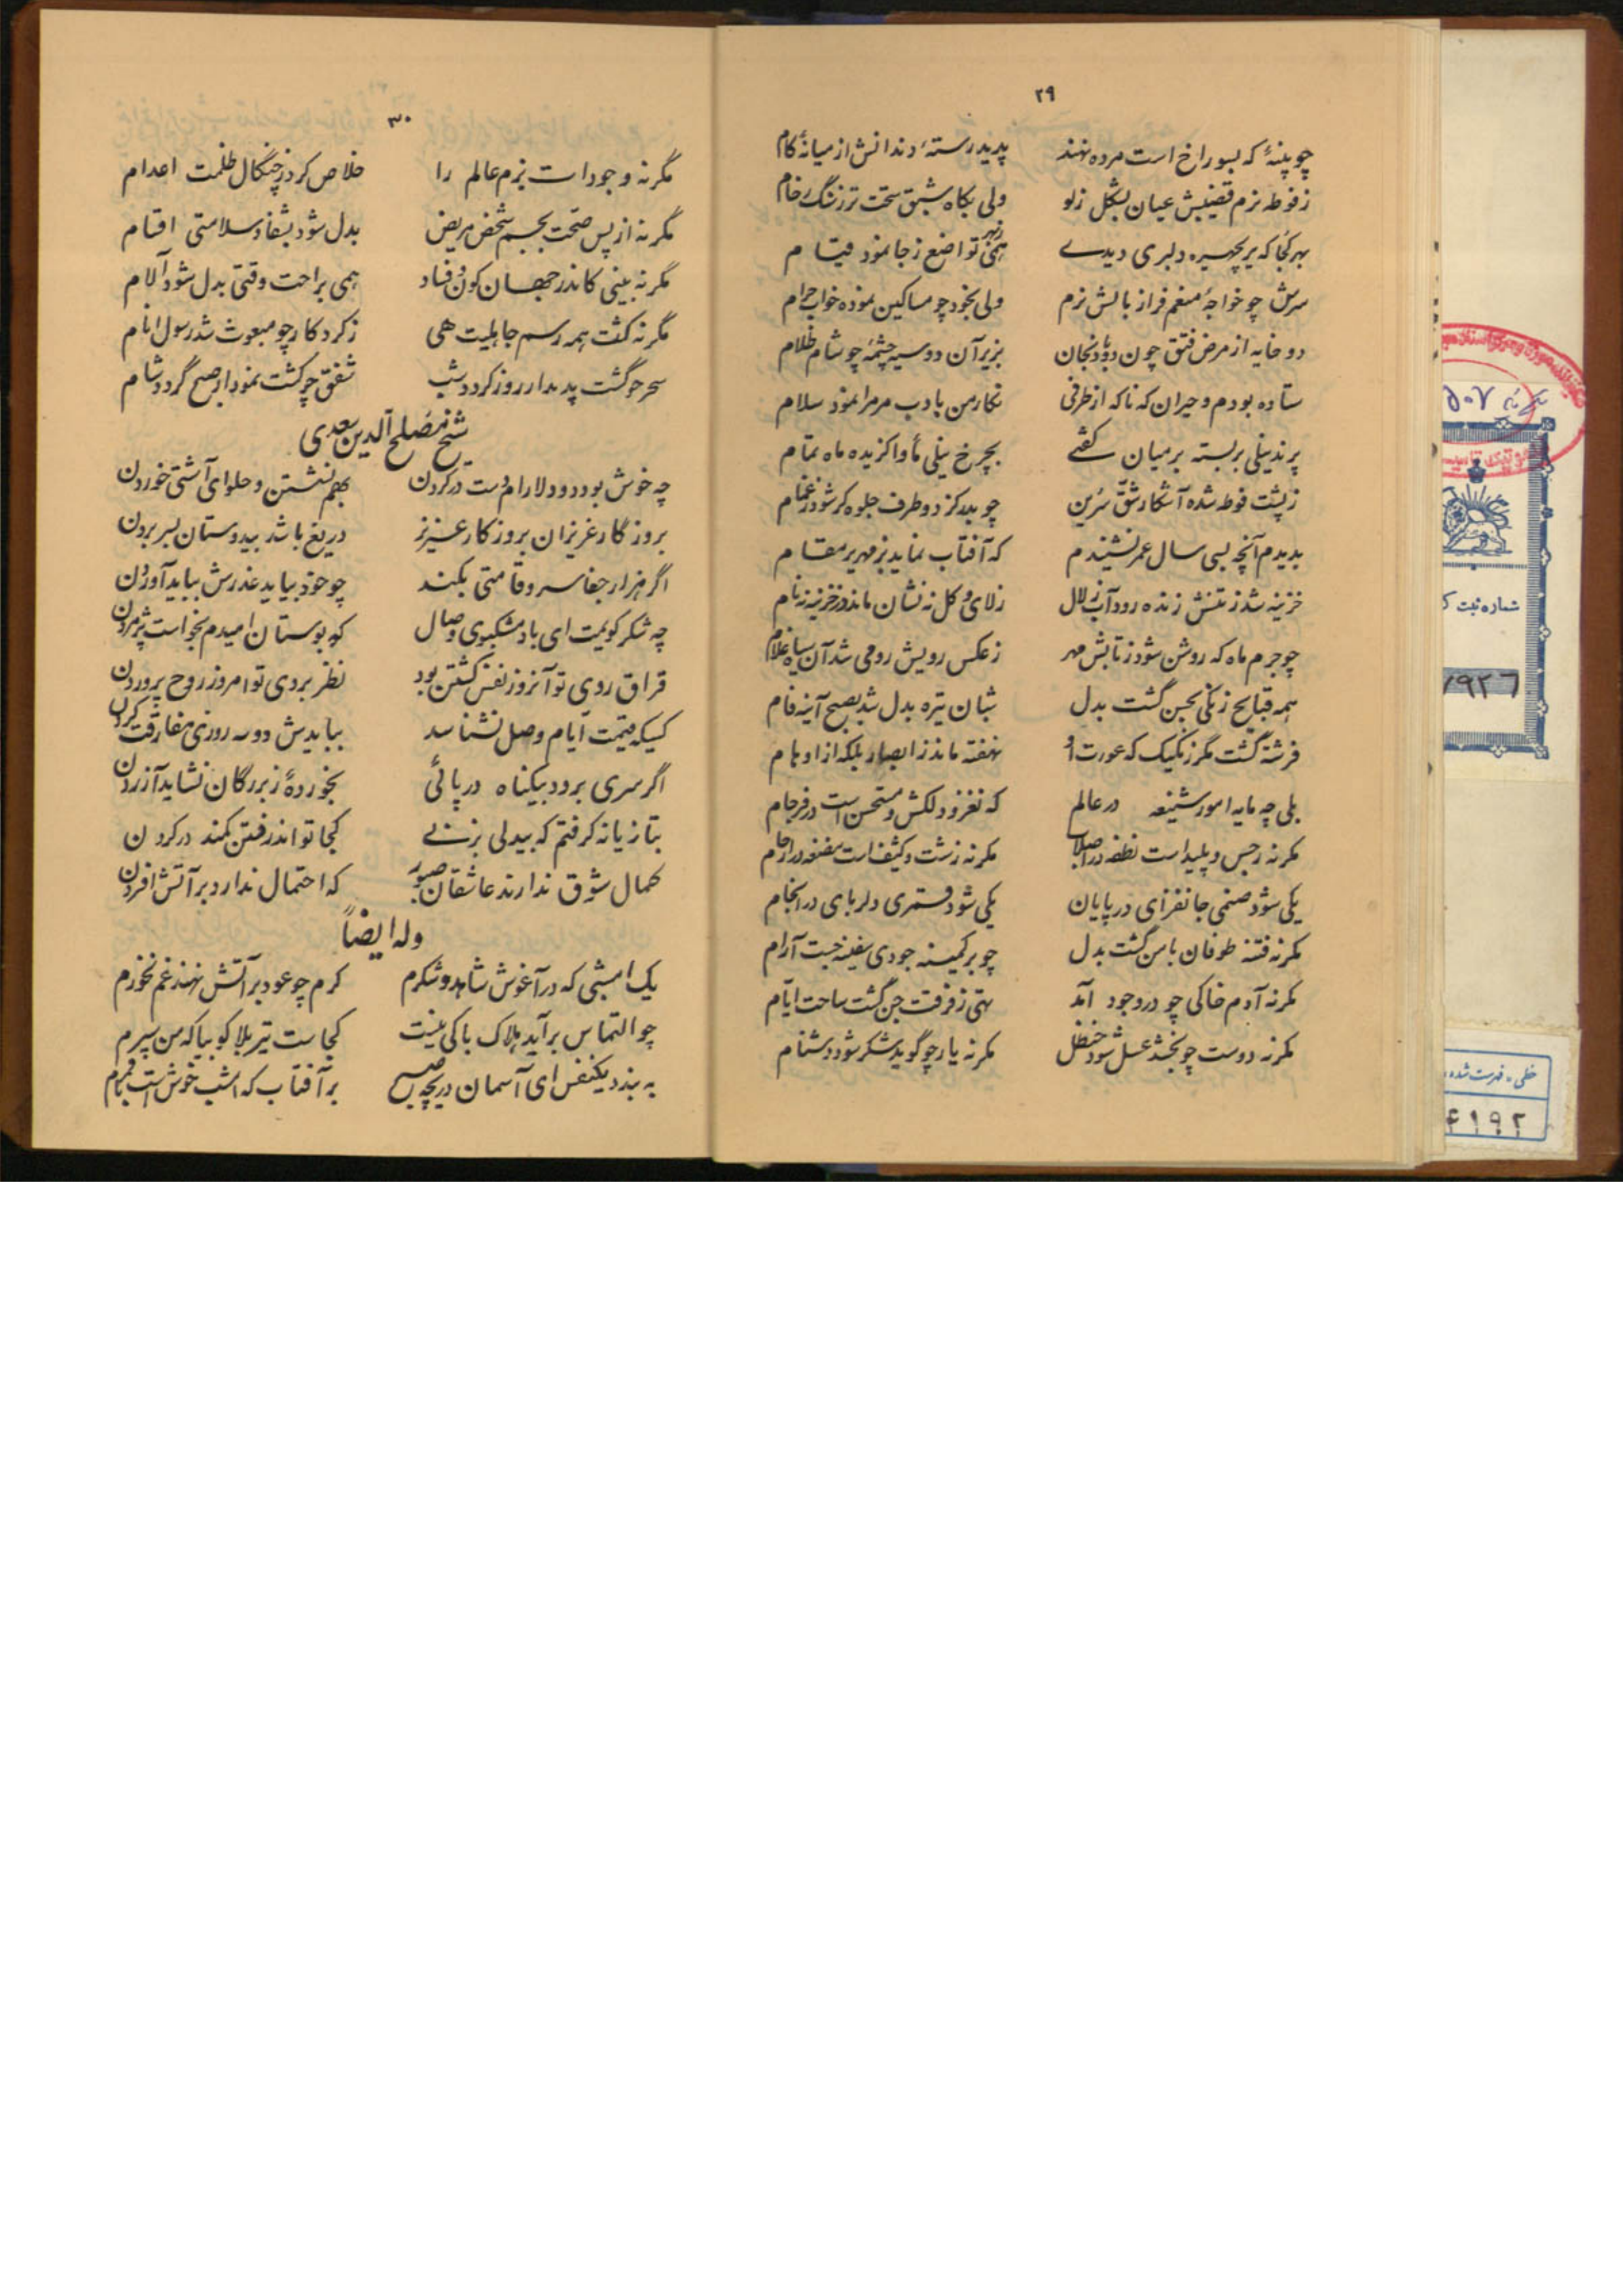 ۲۹
چو پنبهٔ که بسوراخ است مرده نهند پدید رستهٔ دندانش از میانهٔ کام
ز فوطه نرم قضیبش عیان بشکل زلو ولی بگاه شبق سخت تر ز سنگ رخام
بهر کجا که پریچهره دلبری دیدے همی تواضع ز جا نمود قیام
سرش چو خواجهٔ منعم فراز بالش نرم ولی بخود چو مساکین نموده خواب حرام
دو خایه از مرض فتق چون دو بادنجان بزیر آن دو سیه چشمهٔ چو شام ظلام
ستاده بودم و حیران که ناکه از طرفی نکار من بادب مر مرا نمود سلام
پرند نیلی بر بسته بر میان کفتے بچرخ نیلی مأوا کزیده ماه تمام
ز پشت فوطه شده آشکار شق سرین چو بدر کز دو طرف جلوه کر شود ز غمام
بدیدم آنچه بسی سال عمر نشنیدم که آفتاب نماید بزمهریر مقام
خزینه شد ز تنش زنده رود آب زلال ز لای و کل نه نشان ماند در خزینه نه نام
چو جرم ماه که روشن شود ز تابش مهر ز عکس رویش رومی شد آن سیاه غلام
همه قبایح زنکی بحسن گشت بدل شبان تیره بدل شد بصبح آینه فام
فرشته گشت مگر زنگیک که عورت او نهفته ماند ز ابصار بلکه از اوهام
بلی چه مایه امور شنیعه در عالم که نغز و دلکش و مستحسن است در فرجام
مکر نه رجس و پلید است نطفه در اصلاب مکر نه زشت و کثیف است مضغه در ارحام
یکی شود صنمی جانفزای در پایان یکی شود قمری دلربای در انجام
مکر نه فتنه طوفان بامن گشت بدل چو بر کمینه جودی سفینه جست آرام
مکر نه آدم خاکی چو در وجود آمد تهی ز فرقت جن گشت ساحت ایام
مکر نه دوست چو بخشد عسل شود حنظل مکر نه یار چو گوید شکر شود دشنام
۳۰
مگر نه وجودات بزم عالم را خلاص کرد ز چنگال ظلمت اعدام
مگر نه از پس صحت بجسم شخص مریض بدل شود بشفا و سلامتی اقسام
مگر نه بینی کاندر جهان کون و فساد همی براحت وقتی بدل شود آلام
مگر نه کشت همه رسم جاهلیت هی ز کردکار چو مبعوث شد رسول انام
سحر چو گشت پدیدار روز کردد شب شفق چو کشت نمودار صبح گردد شام
شیخ مصلح الدین سعدی
چه خوش بود دو دلارام دست در کردن بهم نشستن و حلوای آشتی خوردن
بروزگار عزیزان بروز کار عزیز دریغ باشد بیدوستان بسر بردن
اگر هزار جفا سرو قامتی بکند چو خود بیاید عذرش بباید آوردن
چه شکر کویمت ای باد مشکبوی وصال که بوستان امیدم بخواست پژمردن
فراق روی تو آنروز نفس کشتن بود نظر بروی تو امروز روح پروردن
کسیکه قیمت ایام وصل نشناسد ببایدش دو سه روزی مفارقت کردن
اگر سری برود بیکناه در پائی بخوردهٔ ز بزرگان نشاید آزردن
بتازیانه کرفتم که بیدلی بزنے کجا تواند رفتن کمند در کردن
کمال شوق ندارند عاشقان صبور که احتمال ندارد بر آتش افسردن
وله ایضاً
یک امشبی که در آغوش شاهد و شکرم کرم چو عود بر آتش نهند غم نخورم
چو التماس برآید هلاک باکی نیست کجاست تیر بلا کو بیا که من سپرم
به بند یکنفس ای آسمان دریچه صبح بر آفتاب که امشب خوش است با قمرم
شماره ثبت
۷۹۲۶
خطی - فهرست شده
۴۱۹۲